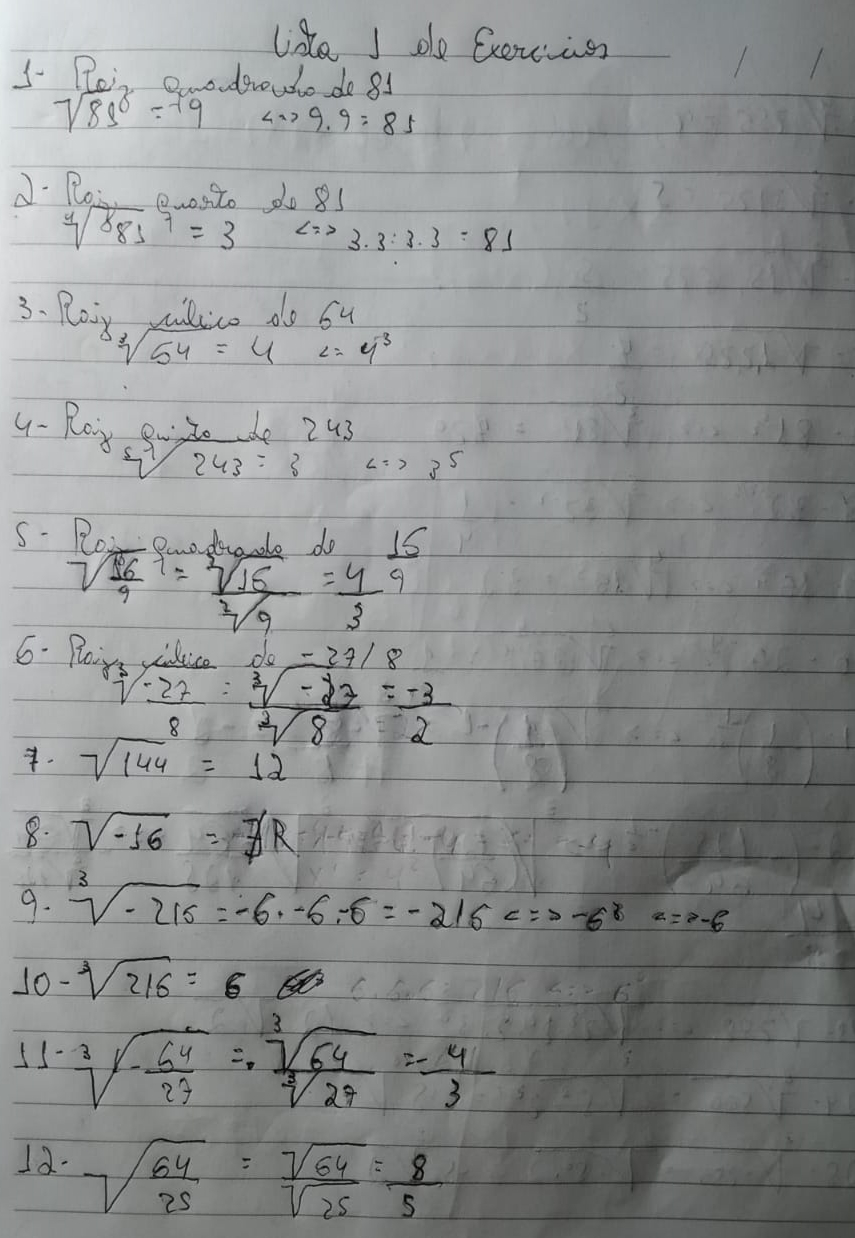 Lista 1 de Exercícios / /
1- Raiz quadrada de 81
√81 = 9 <=> 9.9 = 81
2- Raiz quarta de 81
⁴√81 = 3 <=> 3.3.3.3 = 81
3- Raiz cúbica de 64
³√64 = 4 <= 4³
4- Raiz quinta de 243
⁵√243 = 3 <=> 3⁵
5- Raiz quadrada de 16/9
√16/9 = ²√16/²√9 = 4/3
6- Raiz cúbica de -27/8
³√-27/8 = ³√-27/³√8 = -3/2
7. √144 = 12
8. √-16 = ∄R
9. ³√-216 = -6.-6.-6 = -216 <=> -6³ <=> -6
10- ³√216 = 6
11- ³√-64/27 = -³√64/³√27 = -4/3
12. √64/25 = √64/√25 = 8/5